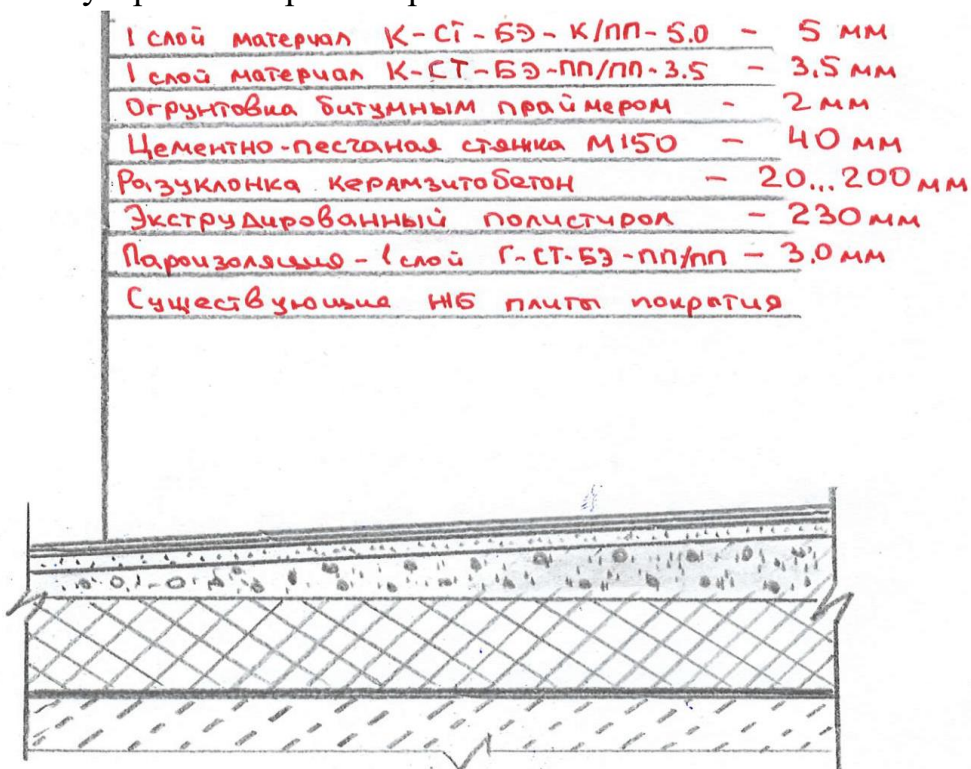 1 слой материал К-СТ-БЭ-К/ПП-5.0 - 5 мм
1 слой материал К-СТ-БЭ-ПП/ПП-3.5 - 3,5 мм
Огрунтовка битумным праймером - 2 мм
Цементно-песчаная стяжка М150 - 40 мм
Разуклонка керамзитобетон - 20...200 мм
Экструдированный полистирол - 230 мм
Пароизоляция - 1 слой Г-СТ-БЭ-ПП/ПП - 3,0 мм
Существующие ЖБ плиты покрытия